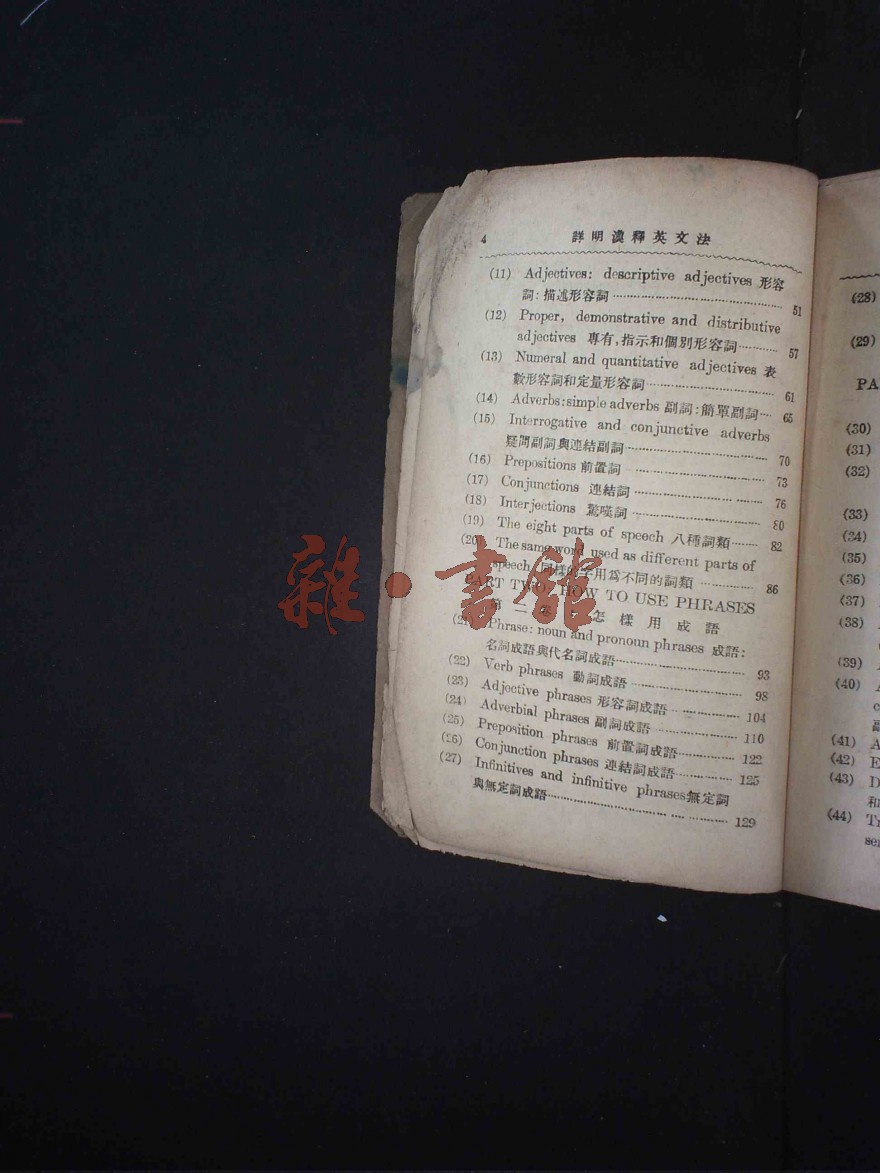 4 詳明漢釋英文法
(11) Adjectives: descriptive adjectives 形容
詞: 描述形容詞 51
(12) Proper, demonstrative and distributive
adjectives 專有, 指示和個別形容詞 57
(13) Numeral and quantitative adjectives 表
數形容詞和定量形容詞 61
(14) Adverbs: simple adverbs 副詞: 簡單副詞 65
(15) Interrogative and conjunctive adverbs
疑問副詞與連結副詞 70
(16) Prepositions 前置詞 73
(17) Conjunctions 連結詞 76
(18) Interjections 驚嘆詞 80
(19) The eight parts of speech 八種詞類 82
(20) The same word used as different parts of
speech 同樣的字用爲不同的詞類 86
PART TWO: HOW TO USE PHRASES
第二 怎樣用成語
Phrase: noun and pronoun phrases 成語:
名詞成語與代名詞成語 93
(22) Verb phrases 動詞成語 98
(23) Adjective phrases 形容詞成語 104
(24) Adverbial phrases 副詞成語 110
(25) Preposition phrases 前置詞成語 122
(26) Conjunction phrases 連結詞成語 125
(27) Infinitives and infinitive phrases 無定詞
與無定詞成語 129
雜·書館
(28)
(29)
PA
(30)
(31)
(32)
(33)
(34)
(35)
(36)
(37)
(38)
(39)
(40) A
c
副
(41) A
(42) E
(43) D
和
(44) Tr
sen